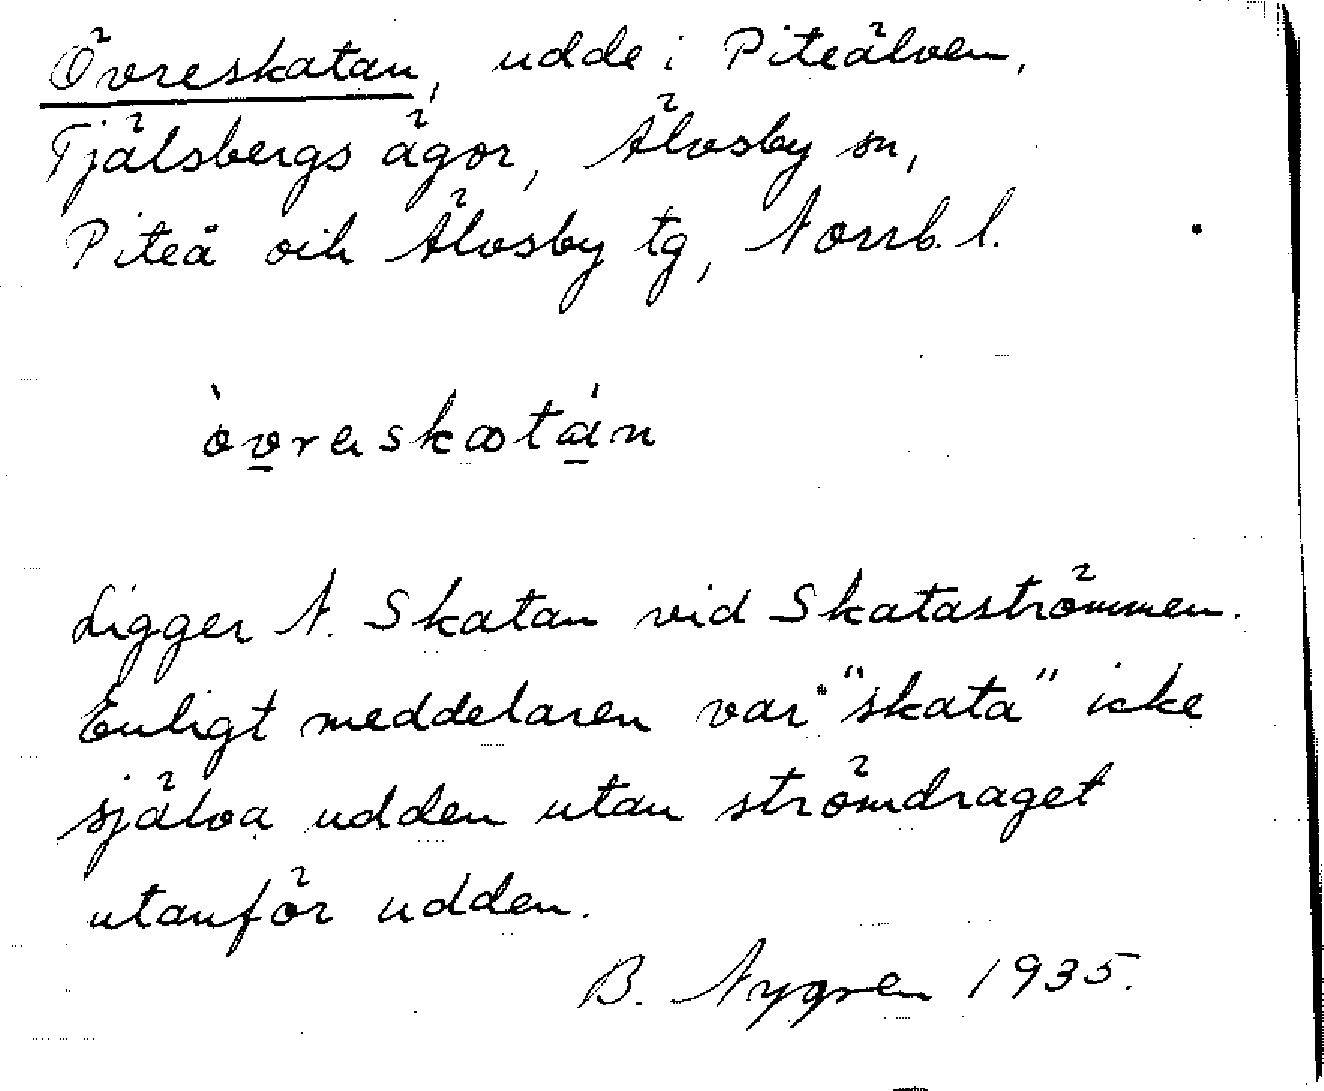 Övreskatan, udde i Piteälven,
Tjälsbergs ägor, Älvsby sn,
Piteå och Älvsby tg, Norrb. l.
Ligger N. Skatan vid Skataströmmen.
Enligt meddelaren var "skata" icke
själva udden utan strömdraget
utanför udden.
B. Nygren 1935.